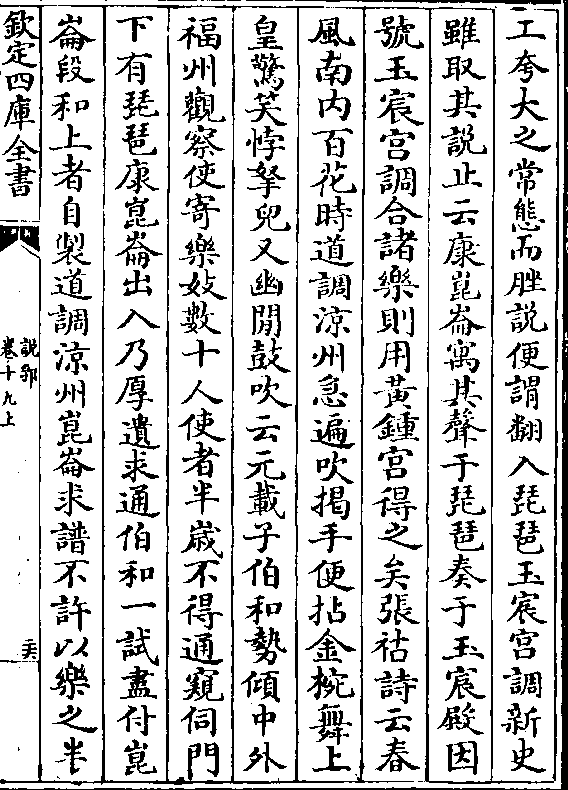 工夸大之常態而脞説便謂翻入琵琶玉宸宮調新史
雖取其説止云康崑崙寓其聲于琵琶奏于玉宸殿因
號玉宸宫調合諸樂則用黄鍾宫得之矣張祜詩云春
風南内百花時道調涼州急遍吹揭手便拈金椀舞上
皇驚笑悖拏兒又幽閒鼓吹云元載子伯和勢傾中外
福州觀察使寄樂妓數十人使者半嵗不得通窺伺門
下有琵琶康崑崙出入乃厚遺求通伯和一試盡付崑
崙段和上者自製道調涼州崑崙求譜不許以樂之半
欽定四庫全書
説郛
卷十九上